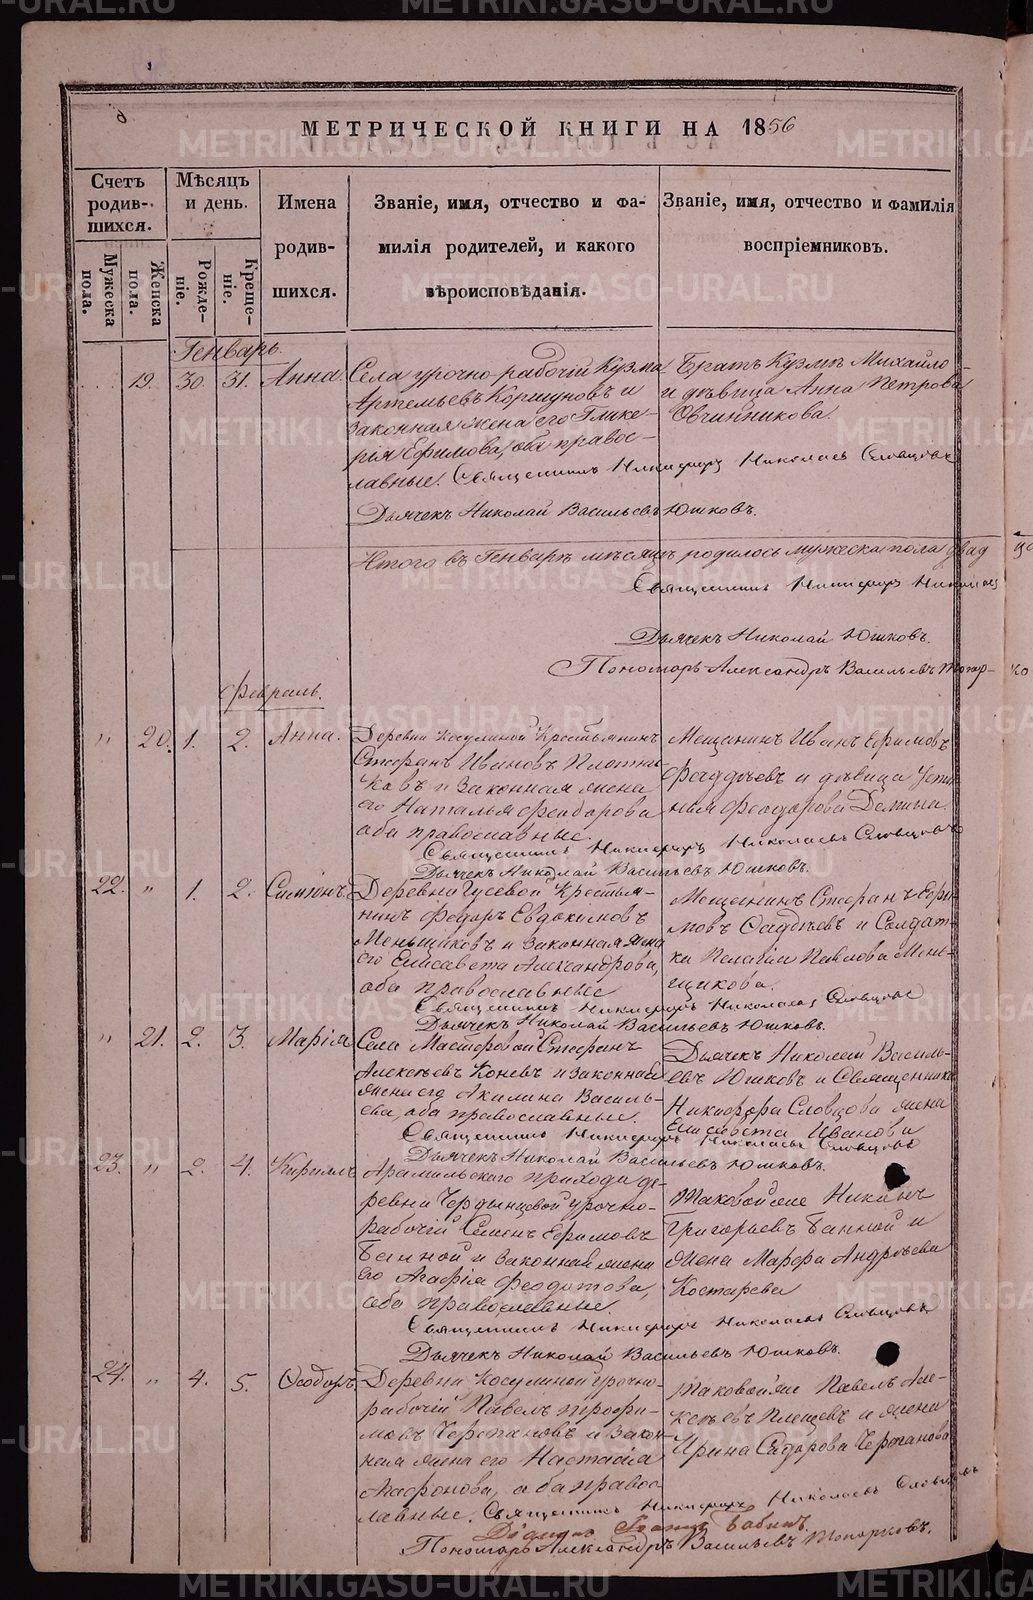 МЕТРИЧЕСКОЙ КНИГИ НА 1856
Счетъ родившихся.
Мужеска пола.
Женска пола.
Мѣсяцъ и день.
Рожденіе.
Крещеніе.
Имена родившихся.
Званіе, имя, отчество и фамилія родителей, и какого вѣроисповѣданія.
Званіе, имя, отчество и фамилія воспріемниковъ.
Генварь.
19. 30. 31. Анна.
Села урочно-рабочій Кузма
Артемьевъ Коршуновъ и
законная жена его Глике-
рія Ефимова, оба правос-
лавные.
Братъ Кузмы Михайло
и дѣвица Анна Петрова
Овчинникова.
Священникъ Никифоръ Николаевъ Словцовъ
Дьячекъ Николай Васильевъ Юшковъ.
Итого въ Генварѣ мѣсяцѣ родилось мужеска пола двад
Священникъ Никифоръ Николаев
Дьячекъ Николай Юшковъ.
Пономарь Александръ Васильевъ Топор-
Февраль.
" 20. 1. 2. Анна.
Деревни Косулиной Крестьянинъ
Стефанъ Ивановъ Плотни-
ковъ и законная жена
его Наталья Феодорова
оба православные.
Мещанинъ Иванъ Ефимовъ
и дѣвица Усти-
нья Феодорова Демина.
Священникъ Никифоръ Николаевъ Словцовъ
Дьячекъ Николай Васильевъ Юшковъ.
22. " 1. 2. Симеонъ.
Деревни Гусевой Крестья-
нинъ Федоръ Евдокимовъ
Меньщиковъ и законная жена
его Елисавета Александрова,
оба православные
Мещанинъ Стефанъ Ефи-
мовъ и Солдат-
ка Пелагія Павлова Мень-
щикова.
Священникъ Никифоръ Николаевъ Словцовъ
Дьячекъ Николай Васильевъ Юшковъ.
" 21. 2. 3. Марія
Села Мастеровой Стефанъ
Алексѣевъ Коневъ и законная
жена его Акилина Василь-
ева, оба православные.
Дьячекъ Николай Василь-
евъ Юшковъ и Священника
Никифора Словцова жена
Елисавета Иванова
Священникъ Никифоръ Николаевъ Словцовъ
Дьячекъ Николай Васильевъ Юшковъ.
23. " 2. 4. Кириллъ
Арамильскаго прихода де-
ревни урочно-
рабочій Семенъ Ефимовъ
Банной и законная жена
его Агафія Феодотова,
оба православные.
Таковой же
Григорьевъ Банной и
жена Марфа Андреева
Костарева
Священникъ Никифоръ Николаевъ Словцовъ
Дьячекъ Николай Васильевъ Юшковъ.
24. " 4. 5. Феодоръ.
Деревни Косулиной урочно-
рабочій Павелъ Трофи-
мовъ Черепановъ и закон-
ная жена его Настасія
Агафонова, оба правос
лавные.
Таковой же Павелъ Але-
ксѣевъ Плещевъ и жена
Ирина Сидорова Черепанова
Священникъ Никифоръ Николаевъ Словцовъ
Діаконъ Іоаннъ Бабинъ.
Пономарь Александръ Васильевъ Топорковъ.
METRIKI.GASO-URAL.RU